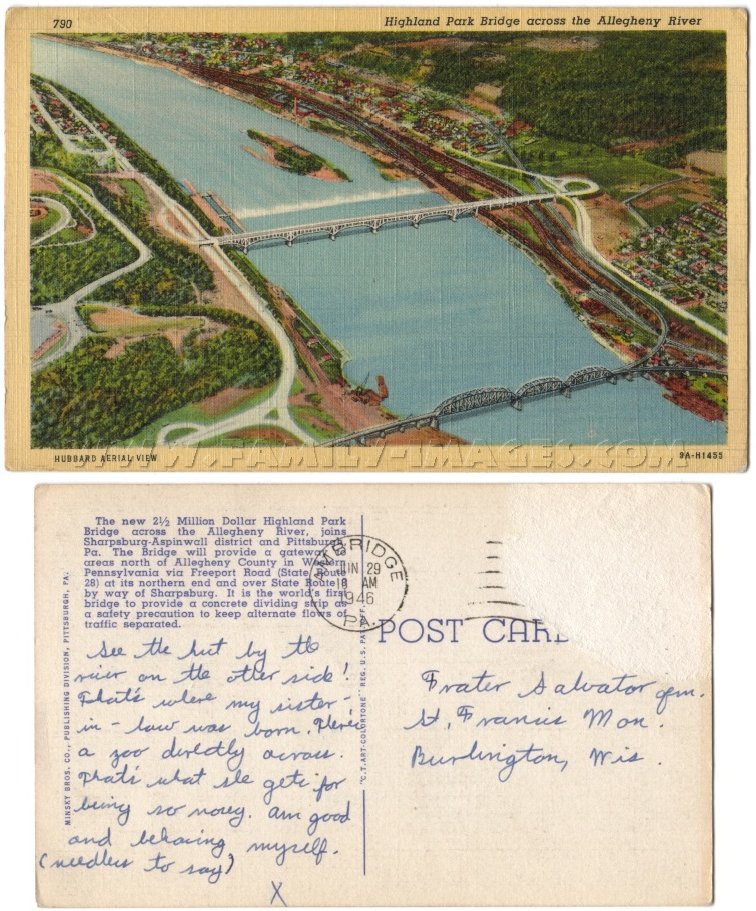 790
Highland Park Bridge across the Allegheny River
HUBBARD AERIAL VIEW
WWW.FAMILY-IMAGES.COM
9A-H1455
The new 2½ Million Dollar Highland Park
Bridge across the Allegheny River, joins
Sharpsburg-Aspinwall district and Pittsburgh,
Pa. The Bridge will provide a gateway
areas north of Allegheny County in Western
Pennsylvania via Freeport Road (State Route
28) at its northern end and over State Route
by way of Sharpsburg. It is the world's first
bridge to provide a concrete dividing strip as
a safety precaution to keep alternate flows of
traffic separated.
MINSKY BROS. CO., PUBLISHING DIVISION, PITTSBURGH, PA.
"C.T. ART-COLORTONE" REG. U.S. PAT. OFF.
AMBRIDGE
JUN 29
8 AM
1946
PA.
POST CARD
See the hut by the
river on the other side!
That's where my sister-
in-law was born. There's
a zoo directly across.
That's what she gets for
being so nosey. Am good
and behaving myself.
(needless to say)
X
Frater Salvator ofm.
St. Francis Mon.
Burlington, Wis.